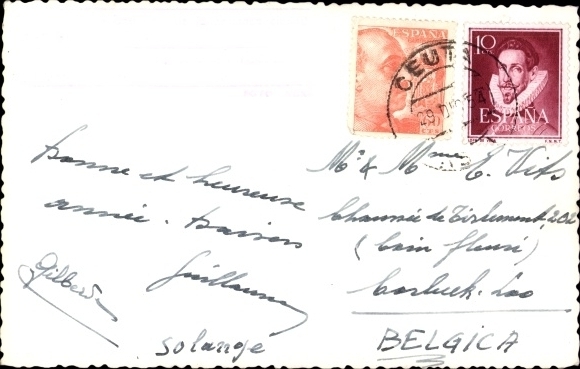 ESPAÑA
10 CTS
CEUTA
29 DIC 54
ESPAÑA
CORREOS
Bonne et heureuse
année. baisers
Guillaume
Gilberte
Solange
Mr & Mme E. Vits
Chaussée de Tirlemont, 202
(Coin fleuri)
Corbeek-Loo
BELGICA